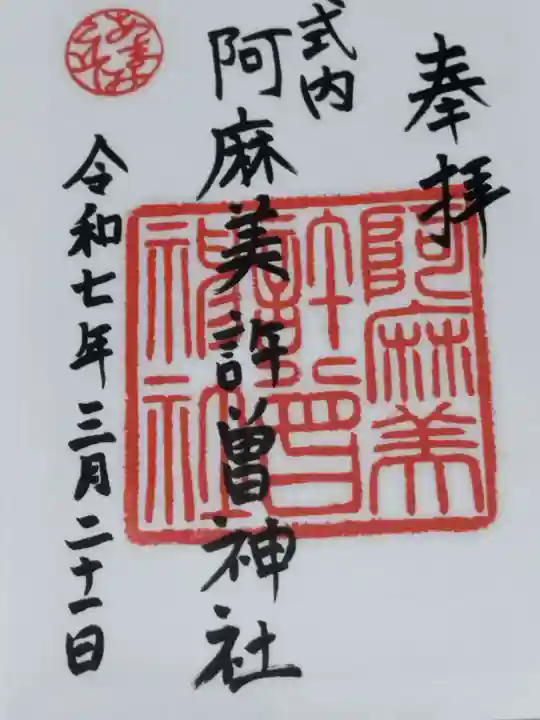 奉拝
式内
阿麻美許曽神社
阿麻美
許曽
神社
令和七年三月二十一日